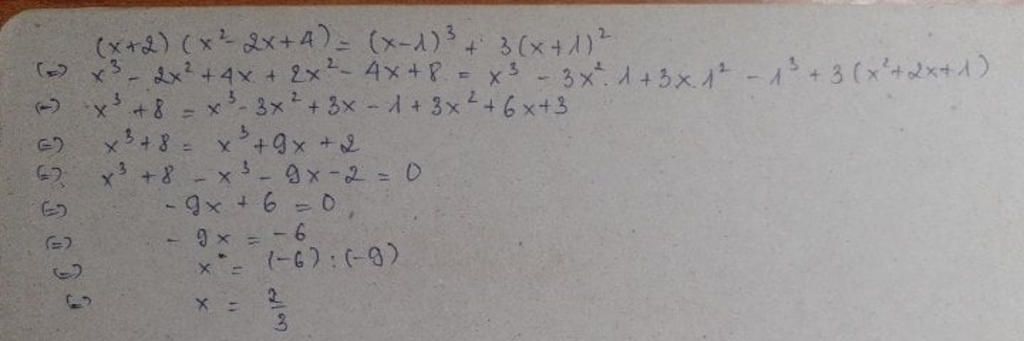 (x+2) (x²- 2x+4) = (x-1)³ + 3(x+1)²
(=) x³ - 2x² + 4x + 2x² - 4x + 8 = x³ - 3x².1 + 3x.1² - 1³ + 3(x²+2x+1)
(=) x³ + 8 = x³ - 3x² + 3x - 1 + 3x² + 6x + 3
(=) x³ + 8 = x³ + 9x + 2
(=) x³ + 8 - x³ - 9x - 2 = 0
(=) - 9x + 6 = 0
(=) - 9x = -6
(=) x = (-6) : (-9)
(=) x = 2/3